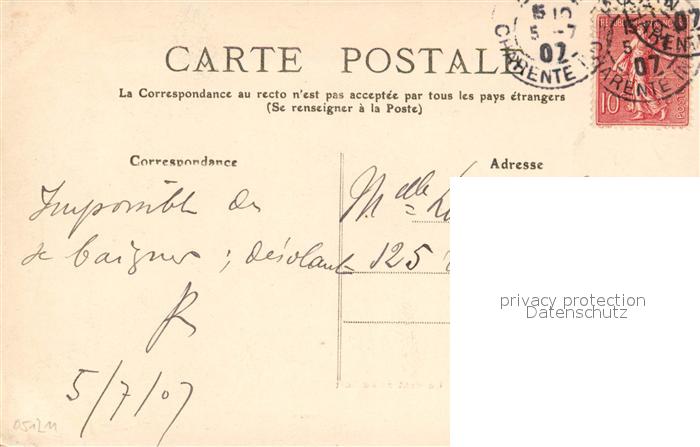 15 10
5 -7
07
CHARENTE
5
07
CHARENTE
07
10
CARTE POSTALE
La Correspondance au recto n'est pas acceptée par tous les pays étrangers
(Se renseigner à la Poste)
Correspondance
Impossible de
se baigner ; désolant
R
5/7/07
05121
Adresse
Mdlle
125
privacy protection
Datenschutz